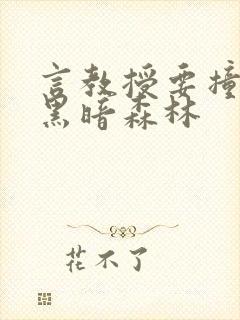 言教授要撞
黑暗森林
花不了